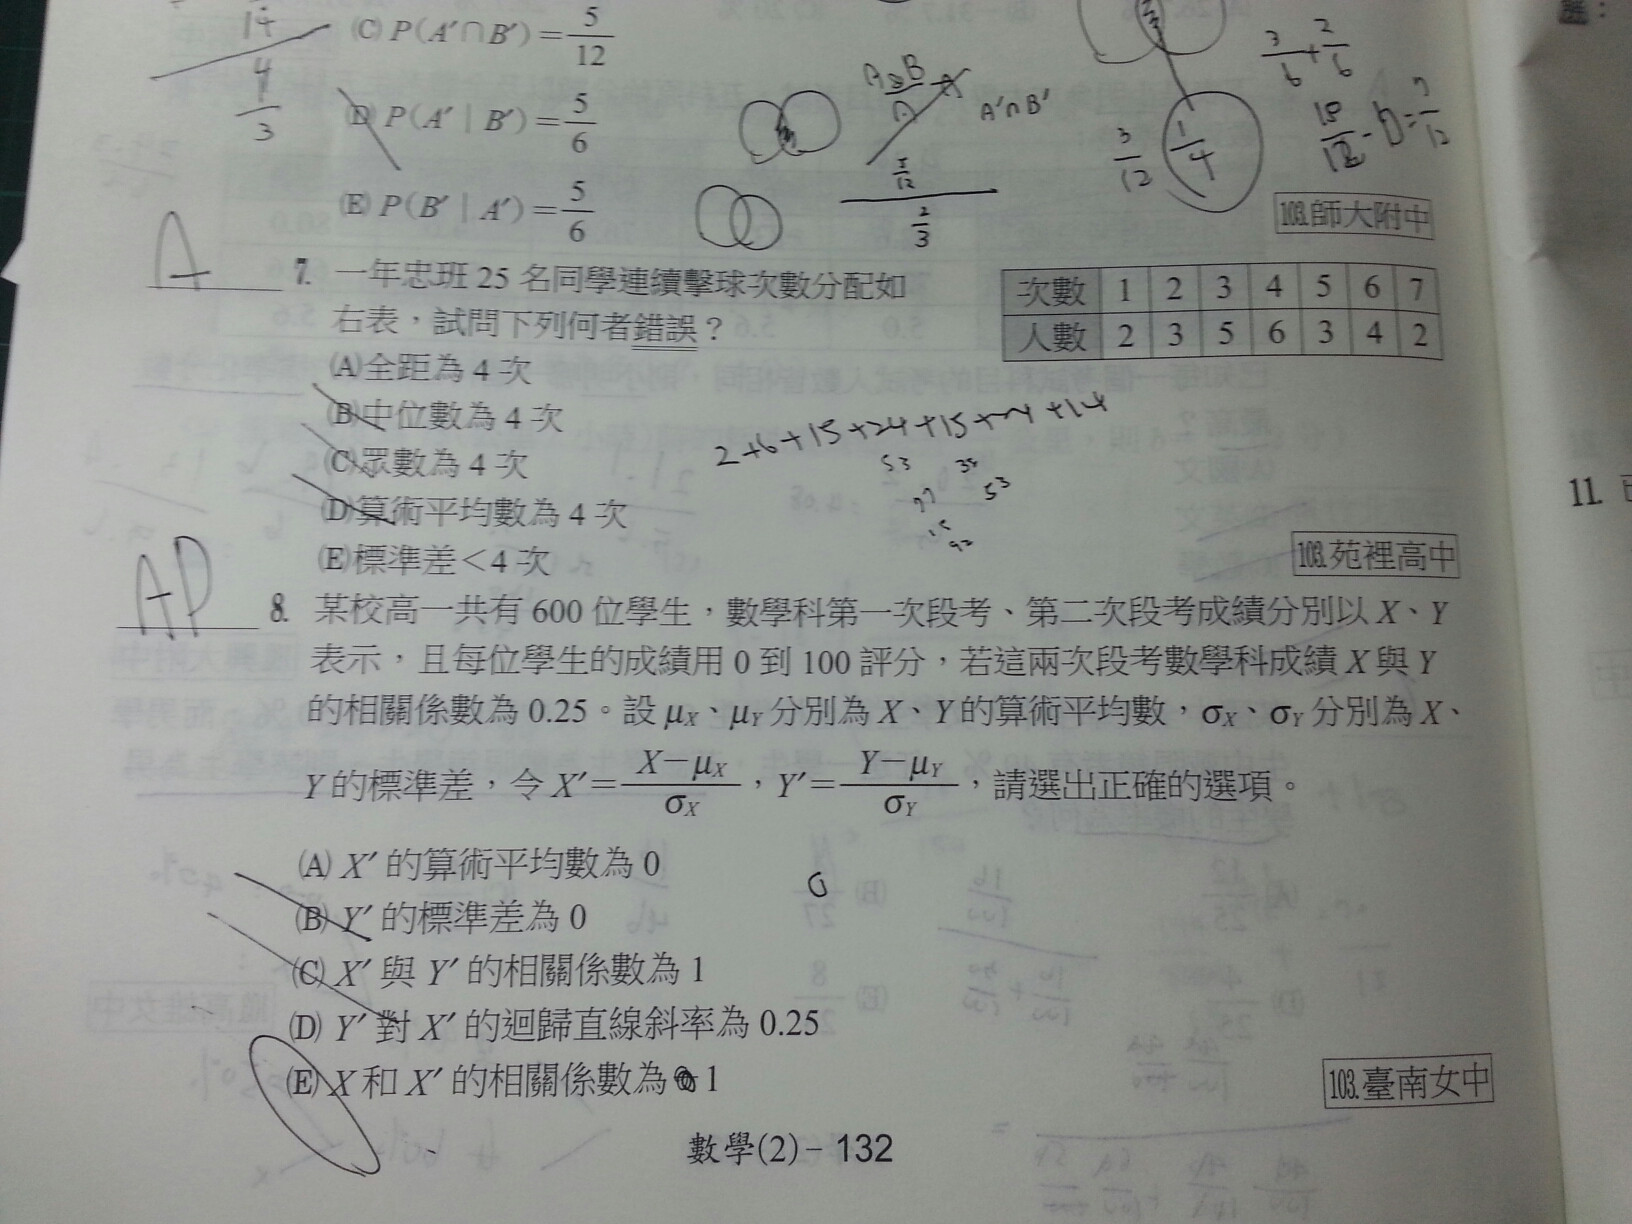 14
(C) P(A′∩B′)=5/12
4
3
(D) P(A′|B′)=5/6
A′∩B′
3/6+2/6
3/12
1/4
(E) P(B′|A′)=5/6
5/12
2/3
103.師大附中
A
7. 一年忠班 25 名同學連續擊球次數分配如
右表，試問下列何者錯誤？
次數 1 2 3 4 5 6 7
人數 2 3 5 6 3 4 2
(A)全距為 4 次
(B)中位數為 4 次
(C)眾數為 4 次
(D)算術平均數為 4 次
(E)標準差＜4 次
2+6+15+24+15+24+14
53
77
53
92
103.苑裡高中
AD
8. 某校高一共有 600 位學生，數學科第一次段考、第二次段考成績分別以 X、Y
表示，且每位學生的成績用 0 到 100 評分，若這兩次段考數學科成績 X 與 Y
的相關係數為 0.25。設 μX、μY 分別為 X、Y 的算術平均數，σX、σY 分別為 X、
Y 的標準差，令 X′=(X−μX)/σX，Y′=(Y−μY)/σY，請選出正確的選項。
(A) X′ 的算術平均數為 0
0
(B) Y′ 的標準差為 0
(C) X′ 與 Y′ 的相關係數為 1
(D) Y′ 對 X′ 的迴歸直線斜率為 0.25
(E) X 和 X′ 的相關係數為 1
103.臺南女中
數學(2)－132
11.